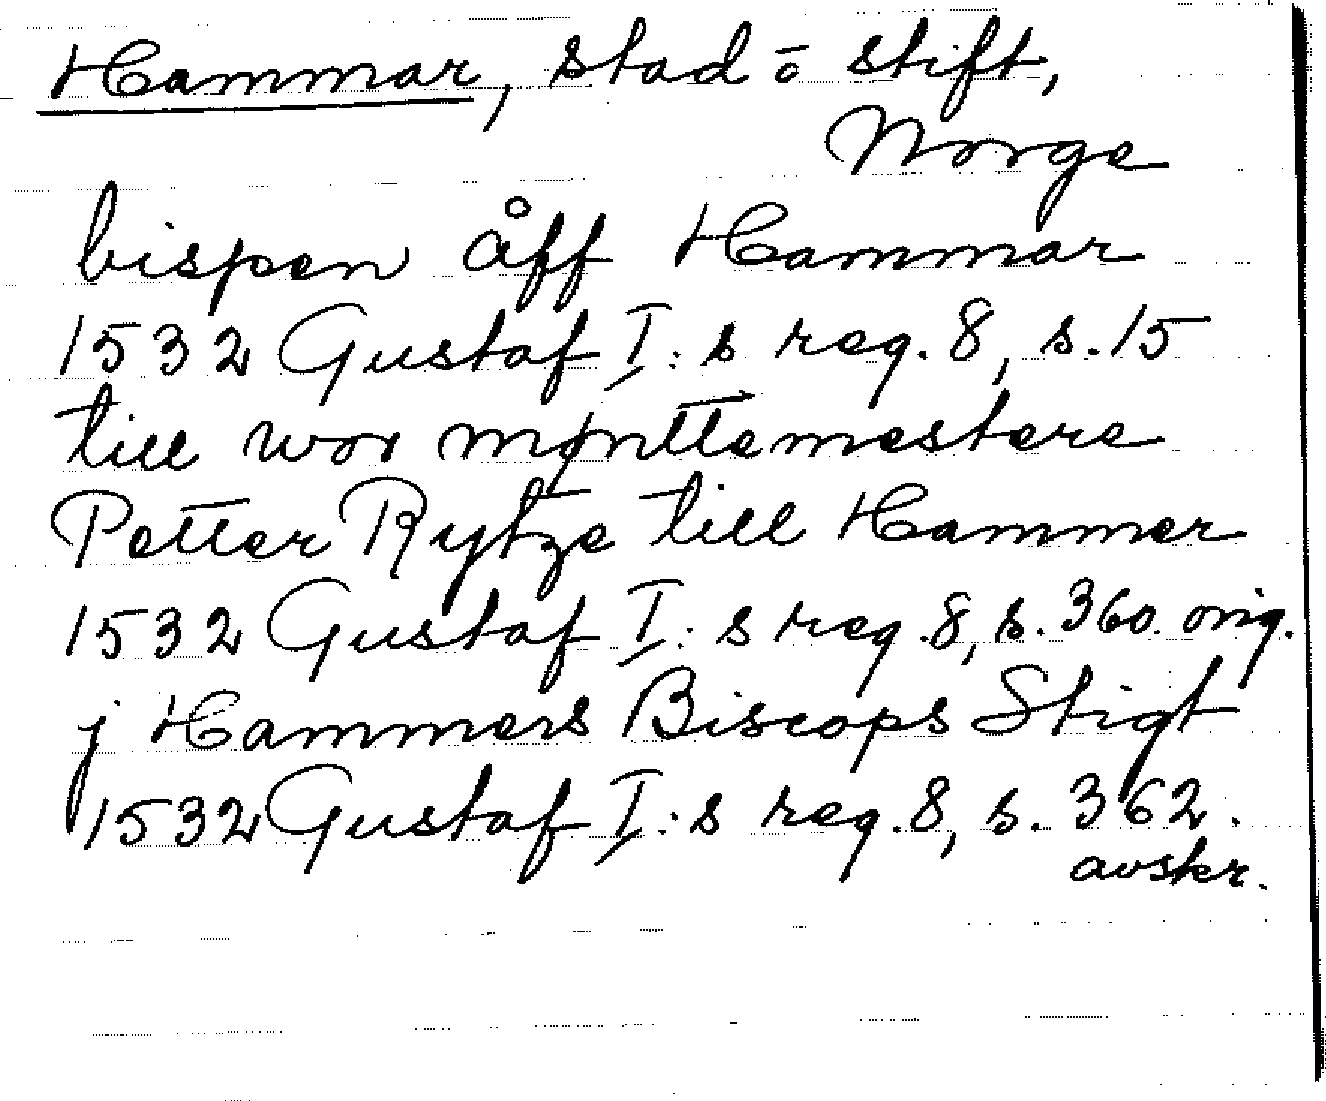 Hammar, stad ō stift,
Norge
bispen åff Hammar
1532 Gustaf I:s reg. 8, s. 15
till wor mønttemestere
Petter Rytze till Hammer
1532 Gustaf I:s reg. 8, s. 360. orig.
j Hammers Biscops Stigt
1532 Gustaf I:s reg. 8, s. 362.
avskr.